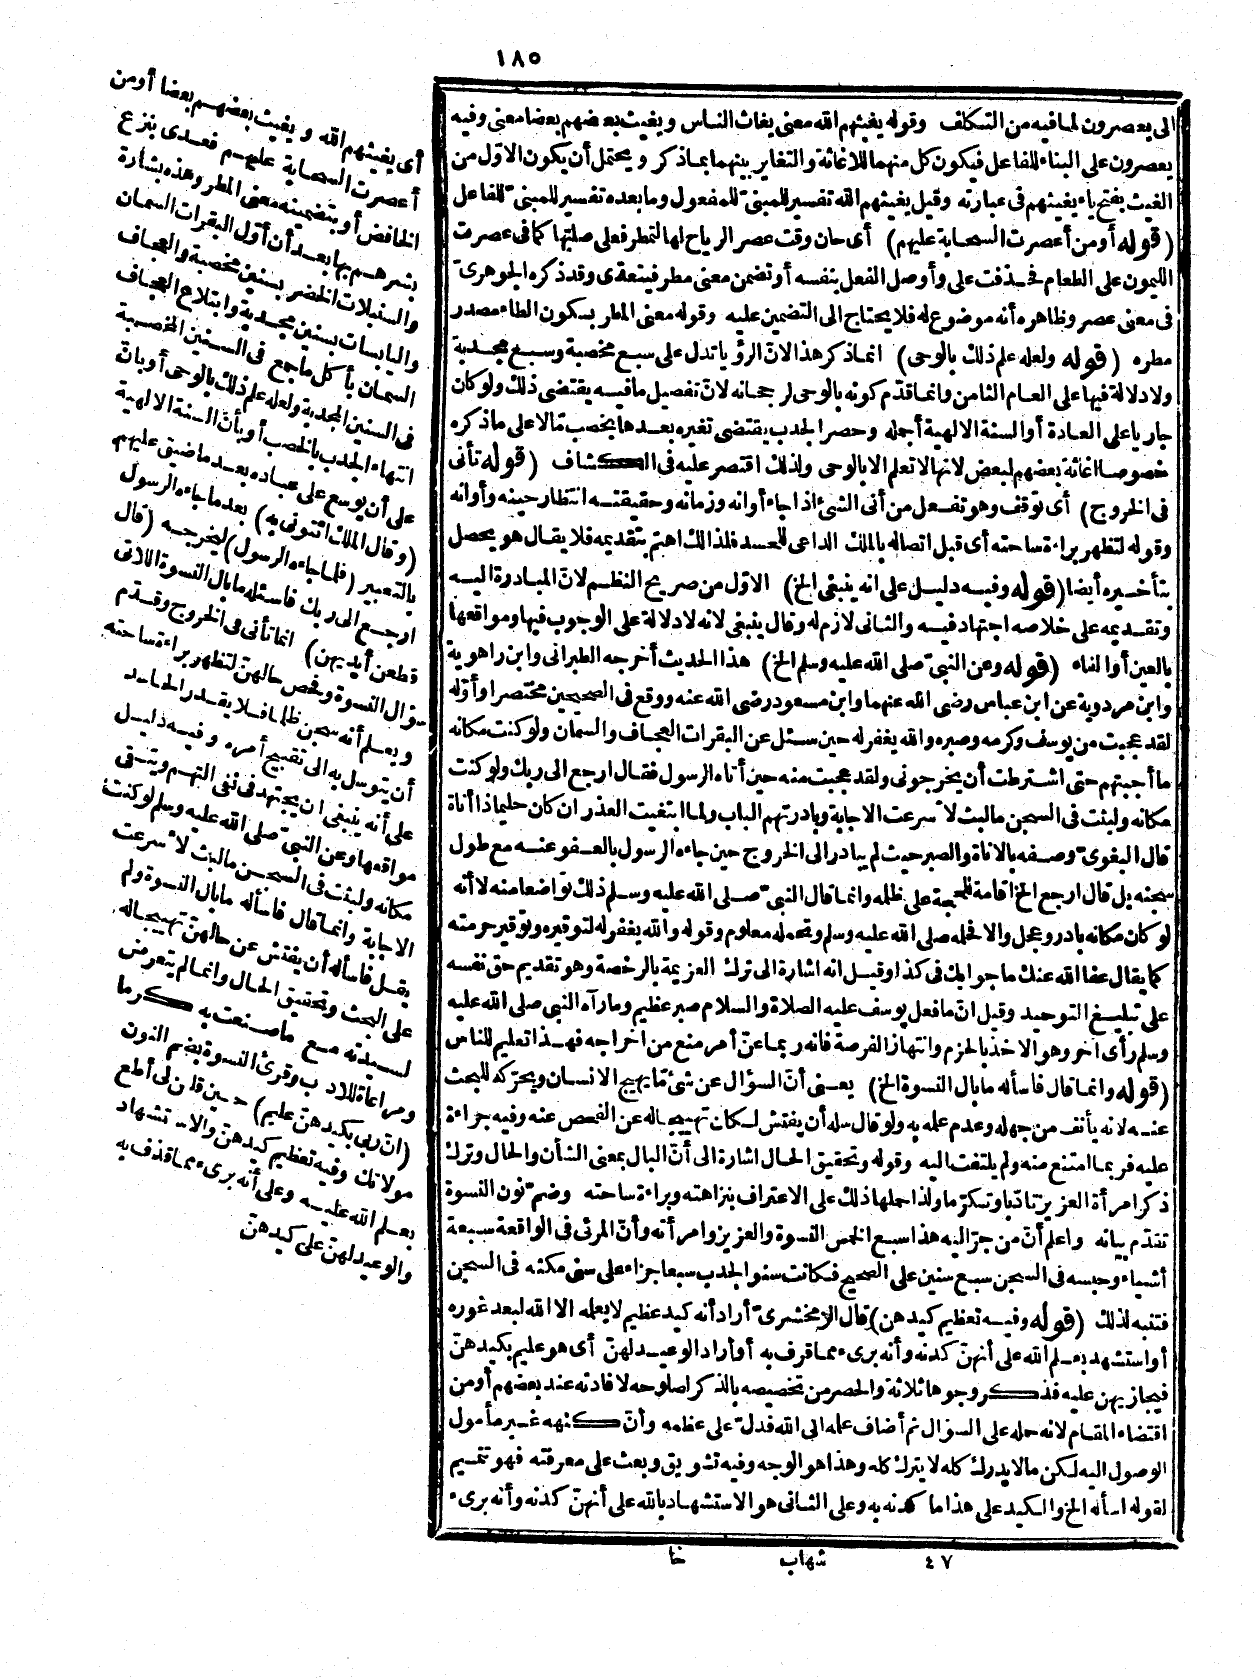 ١٨٥
الى يعصرون لمافيه من التكلف وقوله يغيثهم الله معنى يغاث الناس ويغيث بعضهم بعضا معنى وفيه
يعصرون على البناء للفاعل فيكون كل منهما للاغاثة والتغاير بينهما بماذكر ويحتمل أن يكون الاوّل من
الغيث بفتح ياء يغيثهم فى عبارته وقيل يغيثهم الله تفسير للمبنىّ للمفعول ومابعده تفسير للمبنىّ للفاعل
(قوله أومن أعصرت السحابة عليهم) أى حان وقت عصر الرياح لها لتمطر فعلى صلتها كمافى عصرت
الليمون على الطعام فحذفت على وأوصل الفعل بنفسه أو تضمن معنى مطر فيتعدى وقد ذكره الجوهرىّ
فى معنى عصر وظاهره أنه موضوع له فلا يحتاج الى التضمين عليه وقوله معنى المطر بسكون الطاء مصدر
مطره (قوله ولعله علم ذلك بالوحى) انماذكر هذا لانّ الرؤيا تدل على سبع مخصبة وسبع مجدبة
ولا دلالة فيها على العام الثامن وانماقدّم كونه بالوحى لرجحانه لانّ تفصيل مافيه يقتضى ذلك ولو كان
جاريا على العادة أو السنة الالهية أجمله وحصر الجدب يقتضى تغيره بعدها بخصب مّالا على ماذكره
خصوصا اغاثة بعضهم لبعض لانها لا تعلم الا بالوحى ولذلك اقتصر عليه فى الكشاف (قوله تأنى
فى الخروج) أى توقف وهو تفعل من أنى الشئ اذا جاء أوانه وزمانه وحقيقته انتظار حينه وأوانه
وقوله لتظهر براءة ساحته أى قبل اتصاله بالملك الداعى للحسد فلذا لك اهتم بتقديمه فلا يقال هو يحصل
بتأخيره أيضا (قوله وفيه دليل على انه ينبغى الخ) الاوّل من صريح النظم لانّ المبادرة اليه
وتقديمه على خلاصه اجتهاد فيه والثانى لازم له وقال ينبغى لانه لا دلالة على الوجوب فيها ومواقعها
بالعين أو الفاء (قوله وعن النبىّ صلى الله عليه وسلم الخ) هذا الحديث أخرجه الطبرانى وابن راهوية
وابن مردوية عن ابن عباس رضى الله عنهما وابن مسعود رضى الله عنه ووقع فى الصحيحين مختصرا وأوّله
لقد عجبت من يوسف وكرمه وصبره والله يغفر له حين سئل عن البقرات العجاف والسمان ولو كنت مكانه
ما أجبتهم حتى اشترطت أن يخرجونى ولقد عجبت منه حين أتاه الرسول فقال ارجع الى ربك ولو كنت
مكانه ولبثت فى السجن مالبث لاسرعت الاجابة وبادرتهم الباب ولما ابتغيت العذر ان كان حليما ذا أناة
قال البغوىّ وصفه بالاناة والصبر حيث لم يبادر الى الخروج حين جاءه الرسول بالعفو عنه مع طول
سجنه بل قال ارجع الخ اقامة للحجة على ظلمه وانما قال النبىّ صلى الله عليه وسلم ذلك تواضعا منه لا أنه
لو كان مكانه بادر وعجل والا فحلمه صلى الله عليه وسلم وتحمله معلوم وقوله والله يغفر له لتوقيره وتوقير حرمته
كما يقال عفا الله عنك ماجوابك فى كذا وقيل انه اشارة الى ترك العزيمة بالرخصة وهو تقديم حق نفسه
على تبليغ التوحيد وقيل انّ مافعل يوسف عليه الصلاة والسلام صبر عظيم ومارآه النبى صلى الله عليه
وسلم رأى آخر وهو الاخذ بالحزم وانتهاز الفرصة فانه ربماعنّ أمر منع من اخراجه فهذا تعليم للناس
(قوله وانما قال فاسأله مابال النسوة الخ) يعنى أنّ السؤال عن شئ مّا يهيج الانسان ويحرّكه للبحث
عنه لانه يأنف من جهله وعدم علمه به ولو قال سله أن يفتش لكان تهييجاله عن الفحص عنه وفيه جراءة
عليه فربما امتنع منه ولم يلتفت اليه وقوله وتحقيق الحال اشارة الى أنّ البال بمعنى الشأن والحال وترك
ذكر امرأة العزيز تأدّبا وتكرّما ولذا حملها ذلك على الاعتراف بنزاهته وبراءة ساحته وضمّ نون النسوة
تقدّم بيانه واعلم أنّ من جرّ اليه هذا سبع الخمس النسوة والعزيز وامرأته وأنّ المرئى فى الواقعة سبعة
أشياء وحبسه فى السجن سبع سنين على الصحيح فكانت سنو الجدب سبعا جزاء على سنى مكثه فى السجن
فتنبه لذلك (قوله وفيه تعظيم كيدهن) قال الزمخشرىّ أراد أنه كيد عظيم لا يعلمه الا الله لبعد غوره
أو استشهد بعلم الله على أنهنّ كدنه وأنه برىء مماقرف به أو أراد الوعيد لهنّ أى هو عليم بكيدهنّ
فيجازيهن عليه فذكر وجوها ثلاثة والحصر من تخصيصه بالذكر لصلوحه لافادته عند بعضهم أومن
اقتضاء المقام لانه حمله على السؤال ثم أضاف علمه الى الله فدلّ على عظمه وأنّ كنهه غير مأمول
الوصول اليه لكن مالا يدرك كله لا يترك كله وهذا هو الوجه وفيه تشويق وبعث على معرفته فهو تتميم
لقوله اسأله الخ والكيد على هذا ما كدنه به وعلى الثانى هو الاستشهاد بالله على أنهنّ كدنه وأنه برىء
٤٧ شهاب خا
أى يغيثهم الله ويغيث بعضهم بعضا أومن
أعصرت السحابة عليهم فعدى بنزع
الخافض أو بتضمينه معنى المطر وهذه بشارة
بشرهم بها بعد أن أوّل البقرات السمان
والسنبلات الخضر بسنين مخصبة والعجاف
واليابسات بسنين مجدبة وابتلاع العجاف
السمان بأكل ماجمع فى السنين المخصبة
فى السنين المجدبة ولعله علم ذلك بالوحى أو بانّ
انتهاء الجدب بالخصب أو بأنّ السنة الالهية
على أن يوسع على عباده بعد ماضيق عليهم
(وقال الملك ائتونى به) بعد ماجاءه الرسول
بالتعبير (فلماجاءه الرسول) ليخرجه (قال
ارجع الى ربك فاسئله مابال النسوة اللاتى
قطعن أيديهن) انما تأنى فى الخروج وقدّم
سؤال النسوة وفحص حالهنّ لتظهر براءة ساحته
ويعلم أنه سجن ظلما فلا يقدر الحاسد
أن يتوسل به الى تقبيح أمره وفيه دليل
على أنه ينبغى ان يجتهد فى نفى التهم ويتقى
مواقعها وعن النبىّ صلى الله عليه وسلم لو كنت
مكانه ولبثت فى السجن مالبث لاسرعت
الاجابة وانما قال فاسأله مابال النسوة ولم
يقل فاسأله أن يفتش عن حالهنّ تهييجاله
على البحث وتحقيق الحال وانما لم يتعرض
لسيدته مع ماصنعت به كرما
ومراعاة للادب وقرئ النسوة بضم النون
(انّ ربى بكيدهنّ عليم) حين قلن لى أطع
مولاتك وفيه تعظيم كيدهنّ والاستشهاد
بعلم الله عليه وعلى أنه برىء مما قذف به
والوعيد لهنّ على كيدهنّ